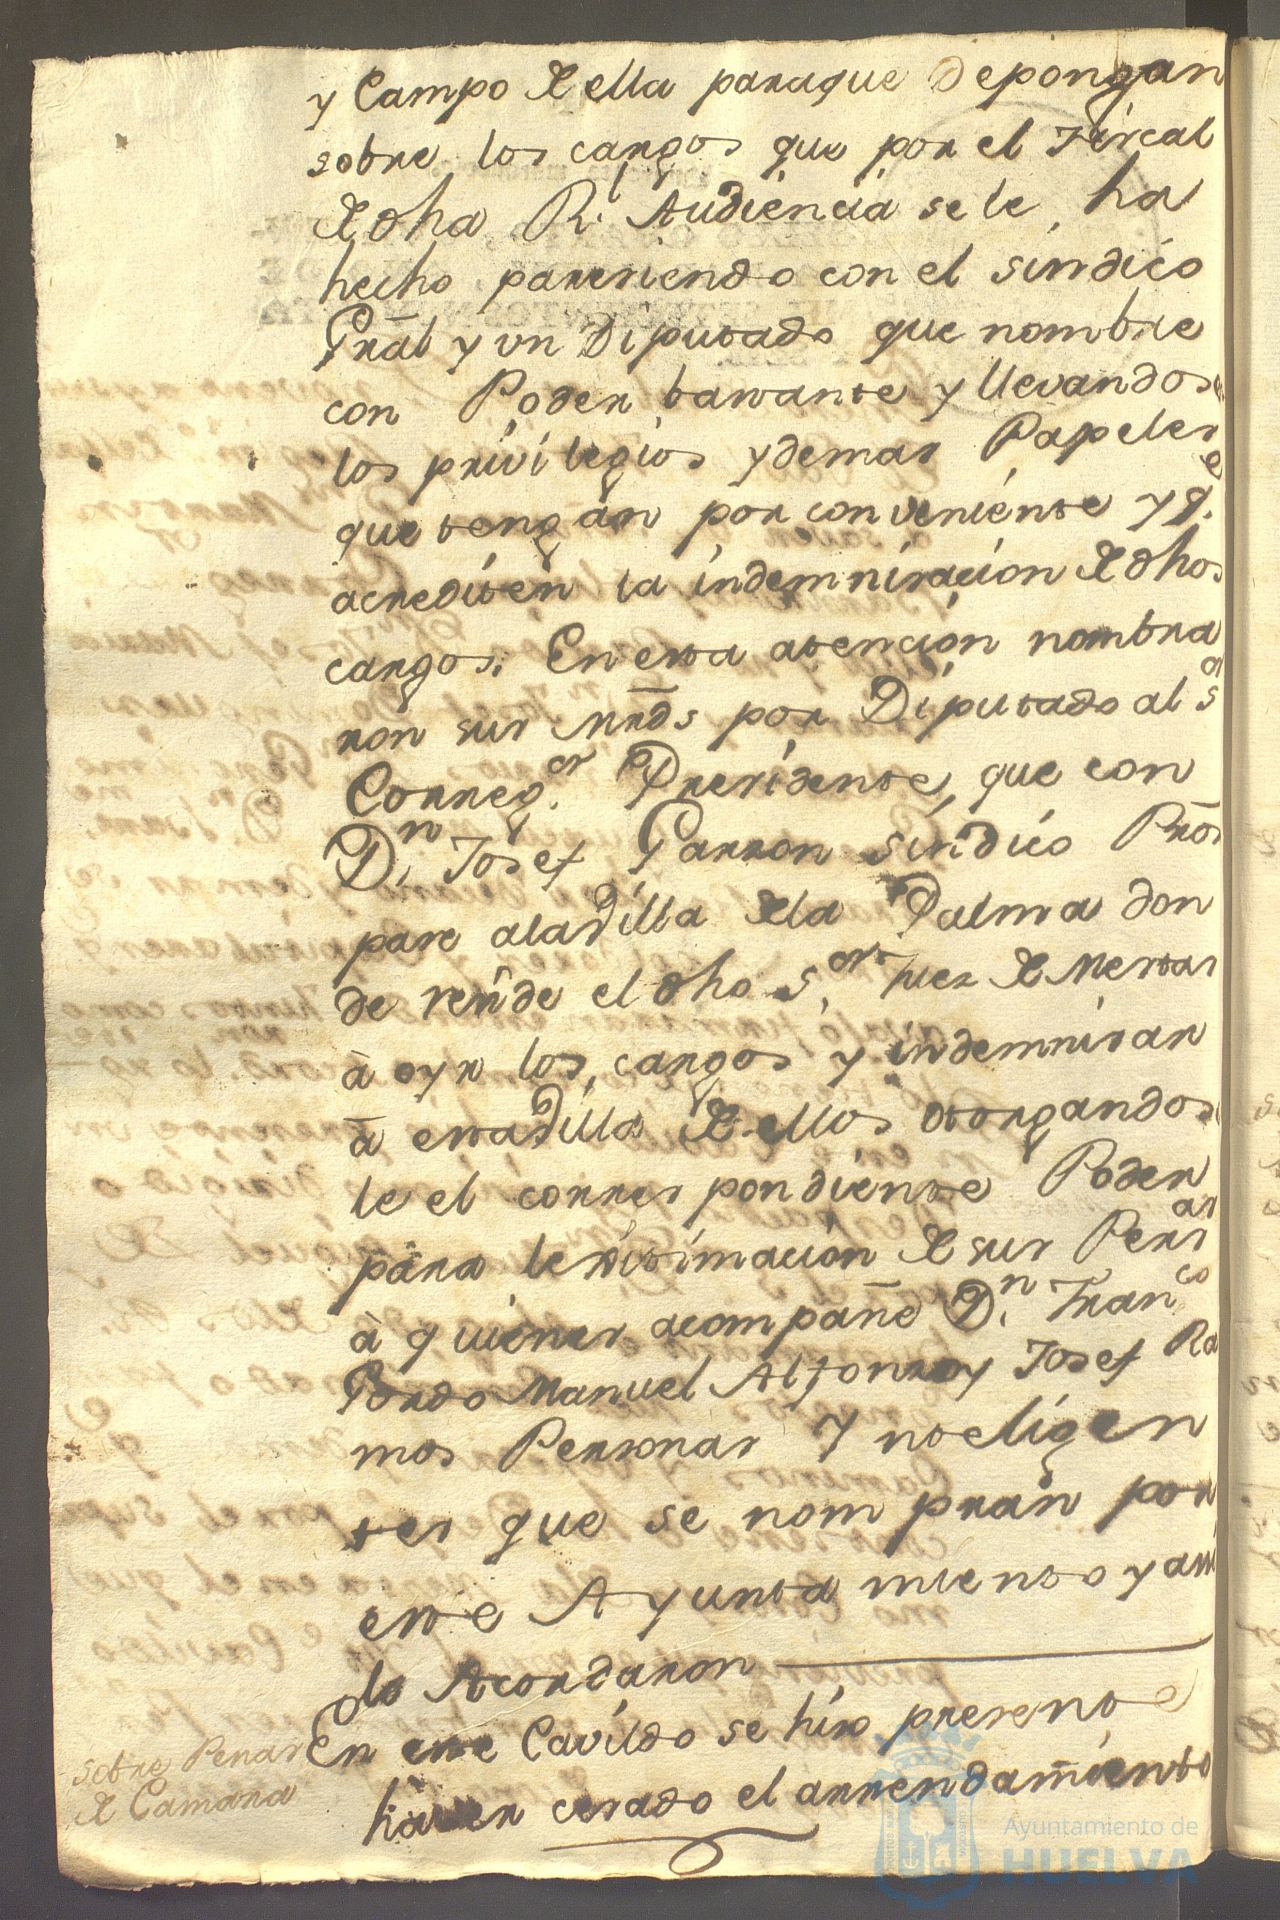 y Campo de ella paraque depongan
sobre los cargos que por el Fiscal
de dha Rl. Audiencia sele ha
hecho, pareciendo con el sindico
Gñal y vn Diputado que nombre
con Poder bastante y llevandose
los privilegios y demas Papeles
que tengan por conveniente y qe.
acrediten la indemnisacion de dhos
cargos. En esta atencion nombra
ron sus Mrds por Diputado al sor
Corregor. Presidente, que con
Dn. Josef Garzon sindico Pror
pase alaVilla dela Palma don
de reside el dho Sor. Juez de Mestas
à oyr los cargos y indemnisar
à estaVilla de ellos otorgandose
le el correspondiente Poder
para lexitimacion de sus Persas
à quienes acompañe Dn. Franco
Gordo Manuel Alfonso y Josef Ra
mos Personas Ynteligen
tes que se nompran por
este Ayuntamiento y asi
lo Acordaron
En este Cavildo se hiso presente
haver cesado el arrendamiento
sobre Penas
de Camara
Ayuntamiento de
HUELVA